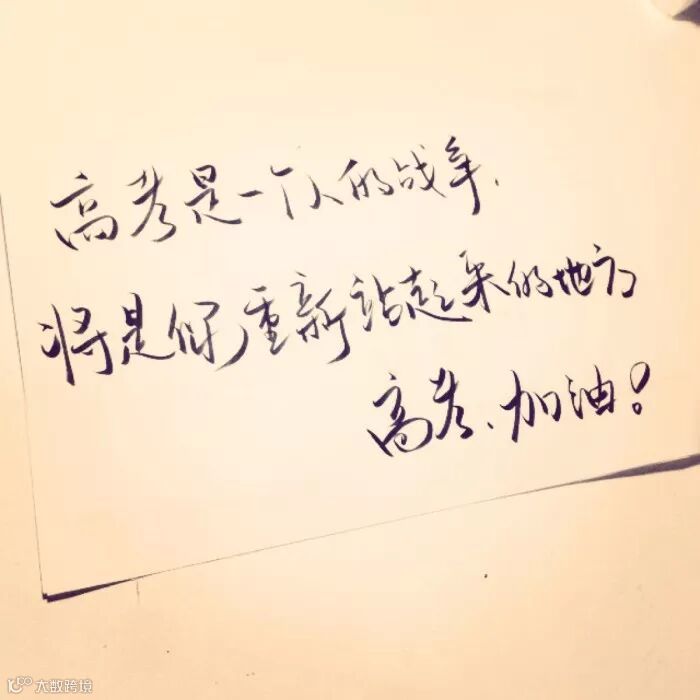 高考是一个人的战争,
将是你重新站起来的地方
高考、加油!
大数跨境